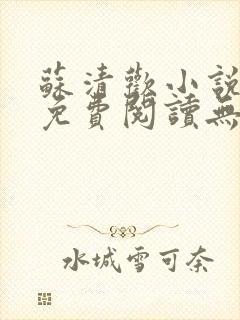 蘇清歡小說
免費閱讀無
水城雪可奈